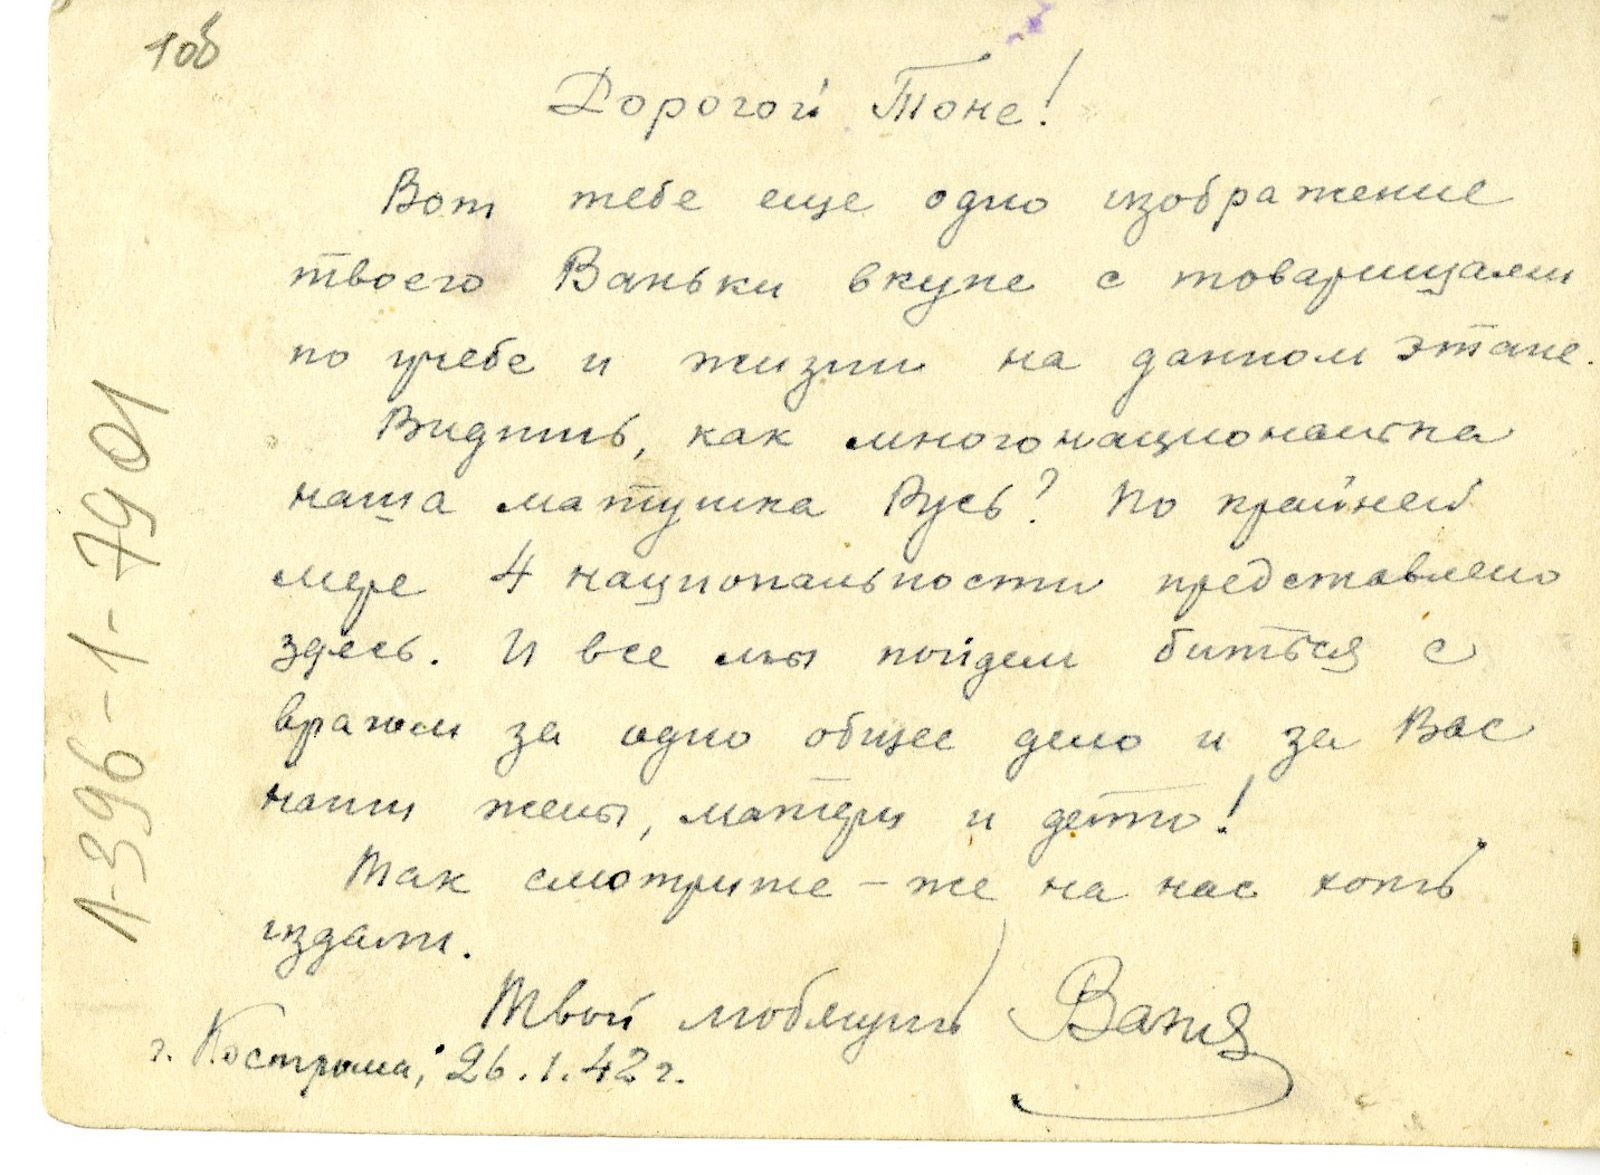 108
Дорогой Тоне!
Вот тебе еще одно изображение
твоего Ваньки вкупе с товарищами
по учебе и жизни на данном этапе.
Видишь, как многонациональна
наша матушка Русь? По крайней
мере 4 национальности представлено
здесь. И все мы пойдем биться с
врагом за одно общее дело и за Вас
наши жены, матери и дети!
Так смотрите-же на нас хоть
издали.
Твой любящий Ваня
г. Кострома; 26.1.42 г.
1-396-1-7901